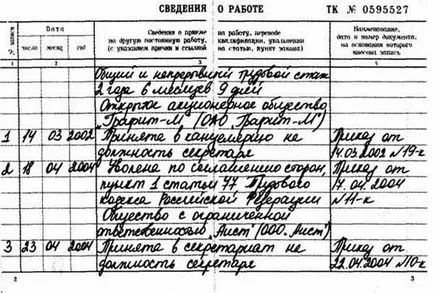 СВЕДЕНИЯ О РАБОТЕ ТК № 0595527
№ записи
Дата
число
месяц
год
Сведения о приеме на работу, переводе
на другую постоянную работу, квалификации, увольнении
(с указанием причин и ссылкой на статью, пункт закона)
Наименование,
дата и номер документа,
на основании которого
внесена запись
1 2 3 4
Общий и непрерывный трудовой стаж
2 года 8 месяцев 9 дней
Открытое акционерное общество
(ОАО
1 14 03 2002 Принята в канцелярию на Приказ от
должность секретаря 14.03.2002 №19-к
2 18 04 2004 Уволена по соглашению сторон, Приказ от
пункт 1 статьи 77 Трудового 17.04.2004
кодекса Российской Федерации №11-к
Общество с ограниченной
ответственностью "Аист" (ООО "Аист")
3 23 04 2004 Принята в секретариат на Приказ от
должность секретаря 22.04.2004 №10-к
2 3